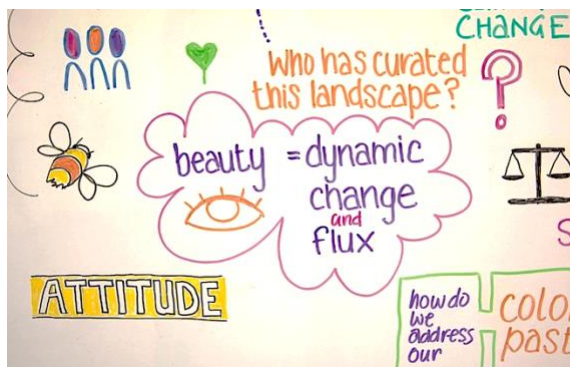 CHANGE
Who has curated
this landscape?
beauty = dynamic
change
and
flux
ATTITUDE
how do
we
address
our